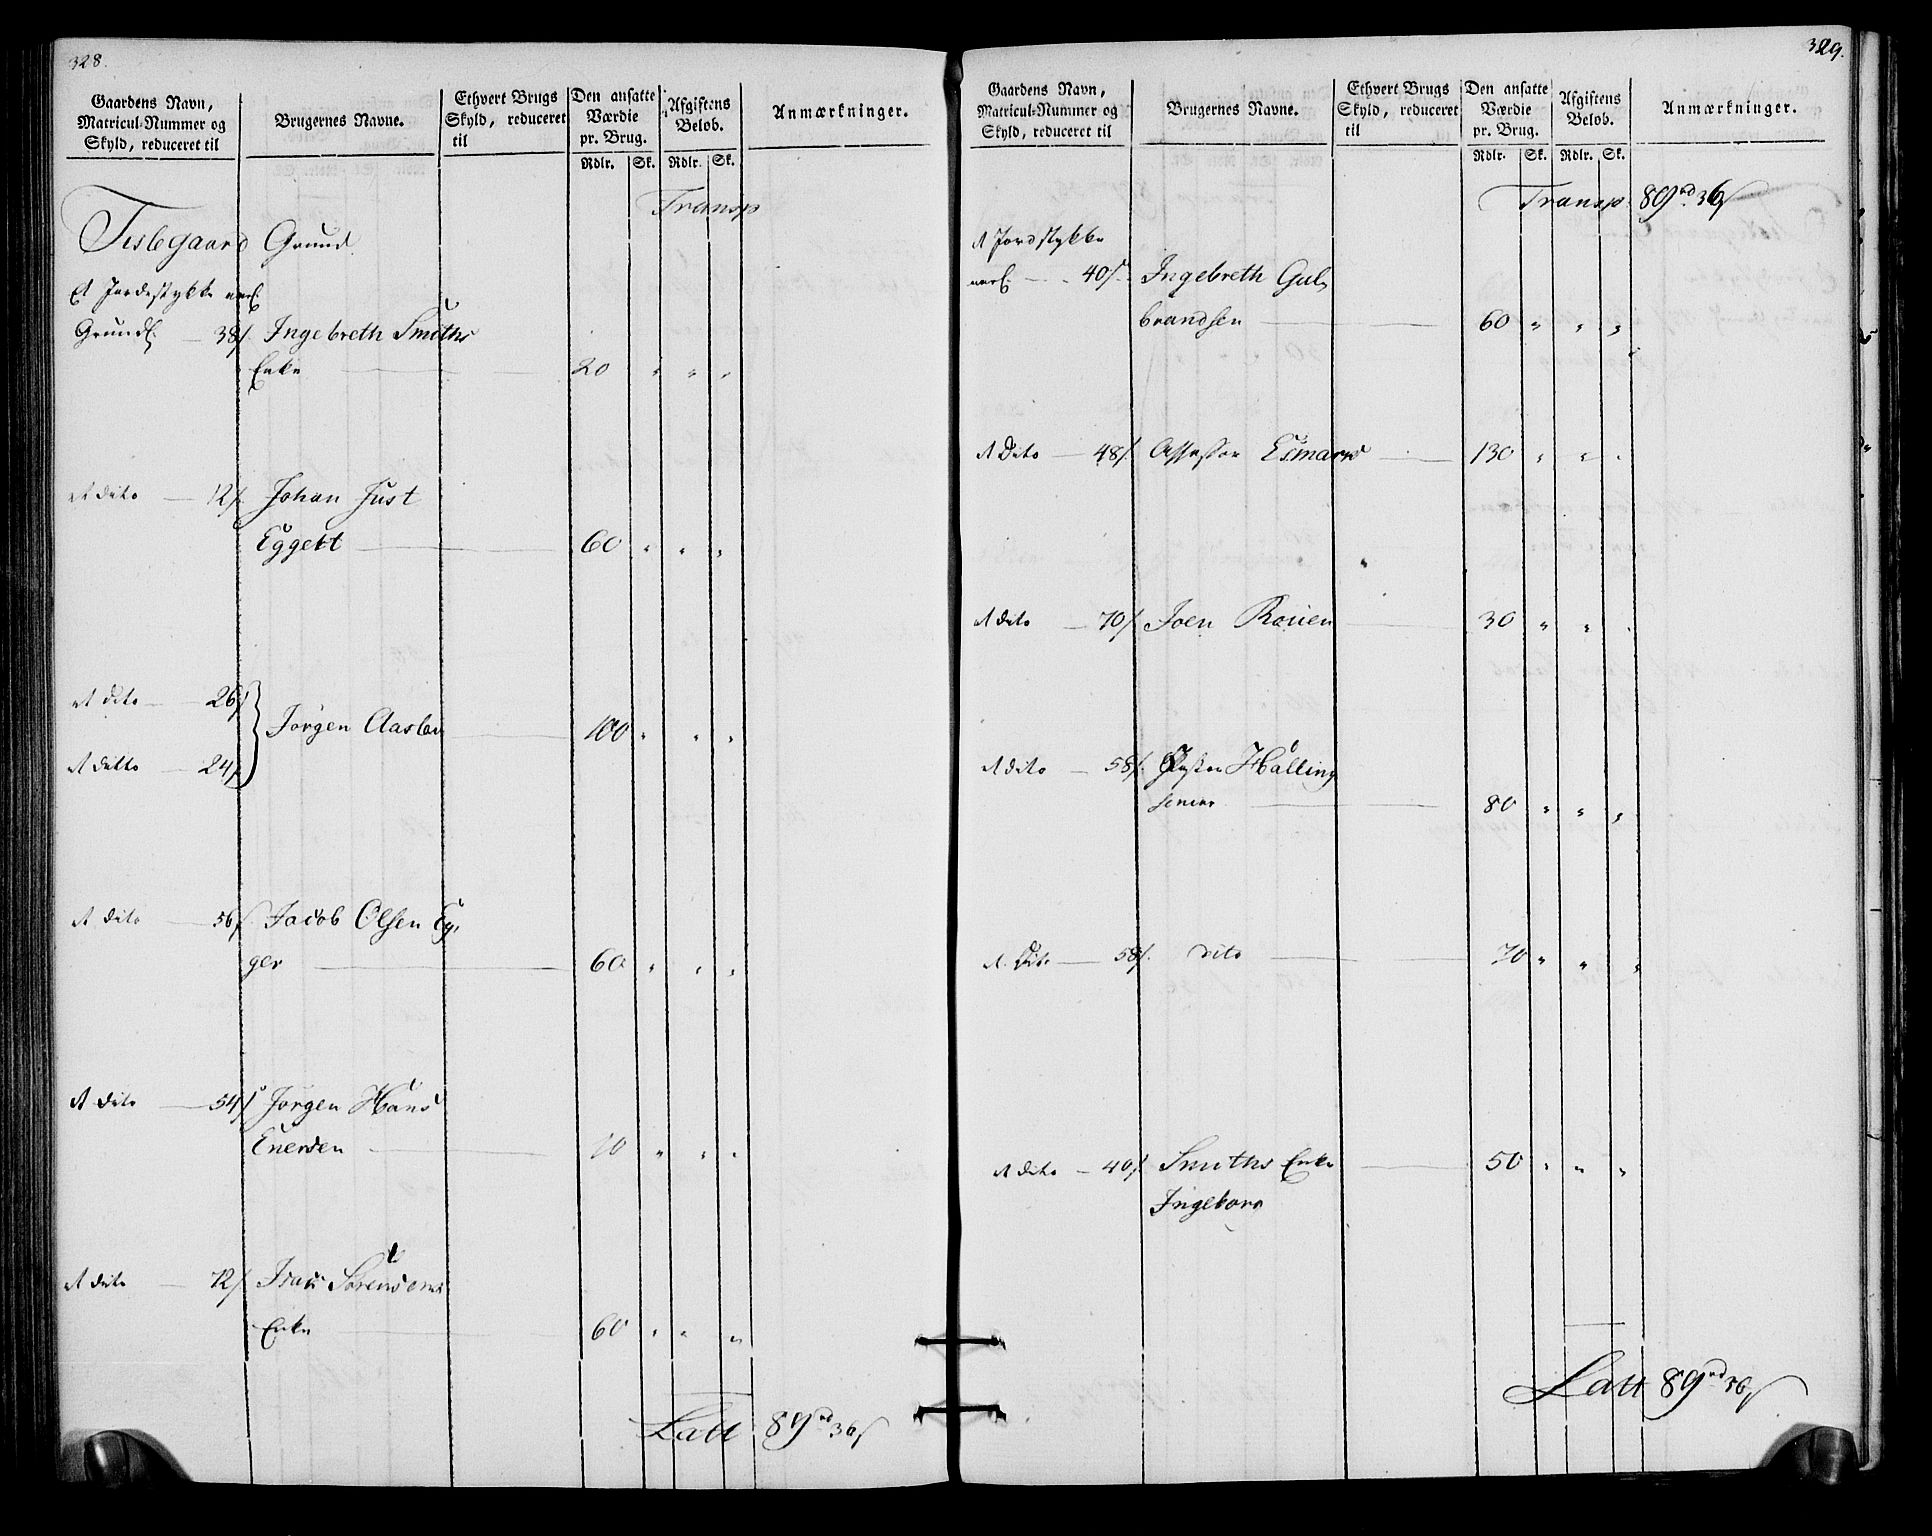 328.
Gaardens Navn,
Matricul-Nummer og
Skyld, reduceret til
Brugernes Navne.
Ethvert Brugs
Skyld, reduceret
til
Den ansatte
Værdie
pr. Brug.
Rdlr. Sk.
Afgiftens
Beløb.
Rdlr. Sk.
Anmærkninger.
Transp
Grund
Et Jordestykke
Grund 38/ Ingebreth Smiths
Enke 20 " " "
Et dito 12/ Johan Just
Eggert 60 " " "
Et dito 26/
Jørgen Aasbe 100 " " "
Et ditto 24/
Et dito 56/ Jacob Olsen Eg,
ger 60 " " "
Et dito 54/ Jørgen Hans
Enersen " " "
Et dito 72/ Isac Sørensens
Enke 60 " " "
Latt 89rd 36s
329.
Gaardens Navn,
Matricul-Nummer og
Skyld, reduceret til
Brugernes Navne.
Ethvert Brugs
Skyld, reduceret
til
Den ansatte
Værdie
pr. Brug.
Rdlr. Sk.
Afgiftens
Beløb.
Rdlr. Sk.
Anmærkninger.
Transp 89rd 36s
Et Jordstykke
40/ Ingebreth Gul,
brandsen 60 " " "
Et Dito 48/ Assessor Esmark 130 " " "
Et dito 70/ Joen Rouen 30 " " "
Et dito 58/ Halling
senior 80 " " "
Et Dito 58/ dito 70 " " "
Et dito 40/ Smiths Enke 50 " " "
Ingeborg
Latt 89rd 36s